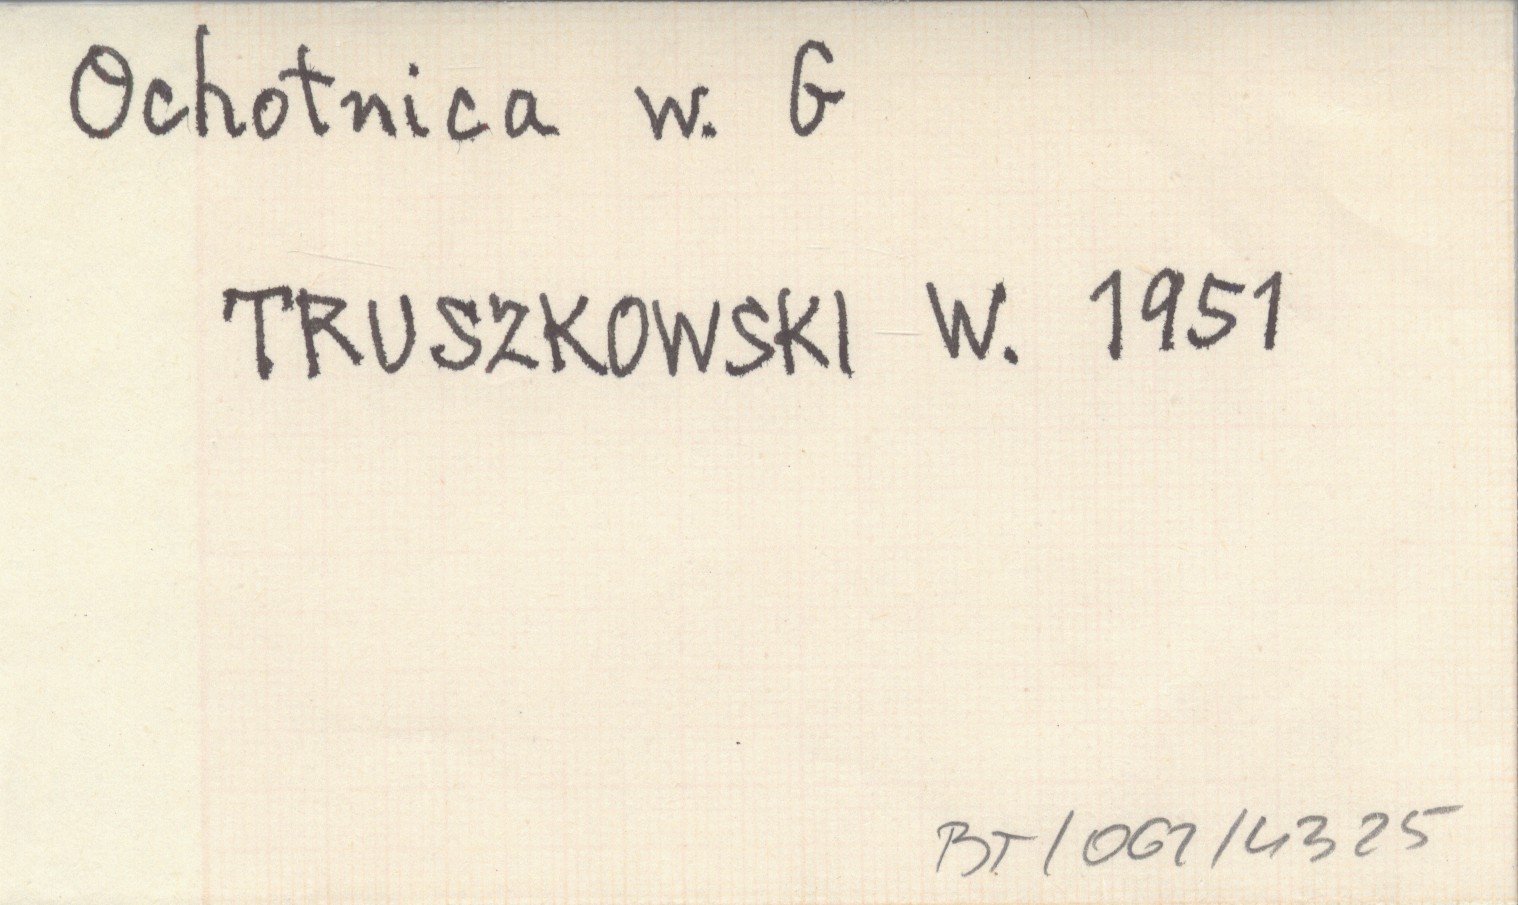 Ochotnica w. G
TRUSZKOWSKI W. 1951
BT/OG1/4325